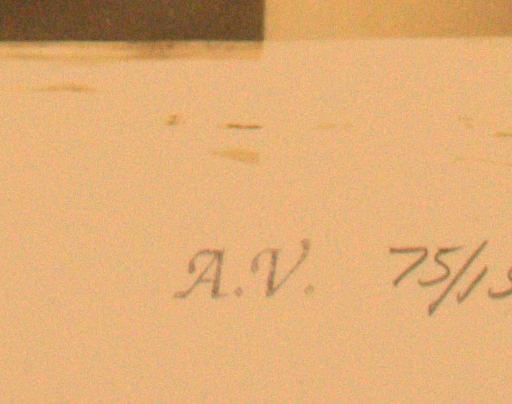 A.V. 75/15